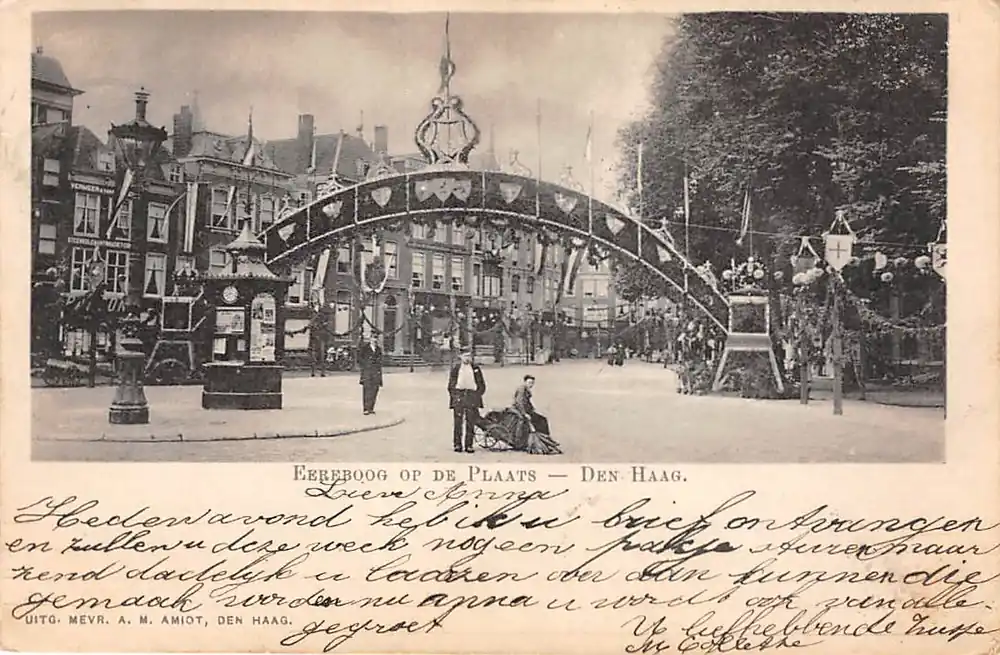 VERMEER &
EEREBOOG OP DE PLAATS — DEN HAAG.
Lieve Anna
Heden avond heb ik u brief ontvangen
en zullen u deze week nog een pakje sturen maar
zend dadelijk u laarzen over dan kunnen die
gemaak worden nu anna u wordt ook van alle
gegroet
UITG. MEVR. A. M. AMIOT, DEN HAAG.
U liefhebbende zusje